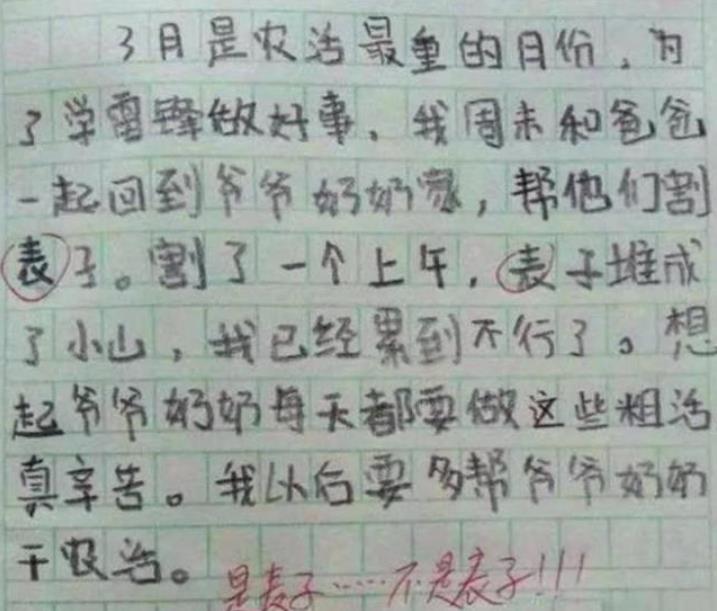 3月是农活最重的月份，为
了学雷锋做好事，我周末和爸爸
一起回到爷爷奶奶家，帮他们割
表子。割了一个上午，表子堆成
了小山，我已经累到不行了。想
起爷爷奶奶每天都要做这些粗活
真辛苦。我以后要多帮爷爷奶奶
干农活。
是麦子……不是表子!!!